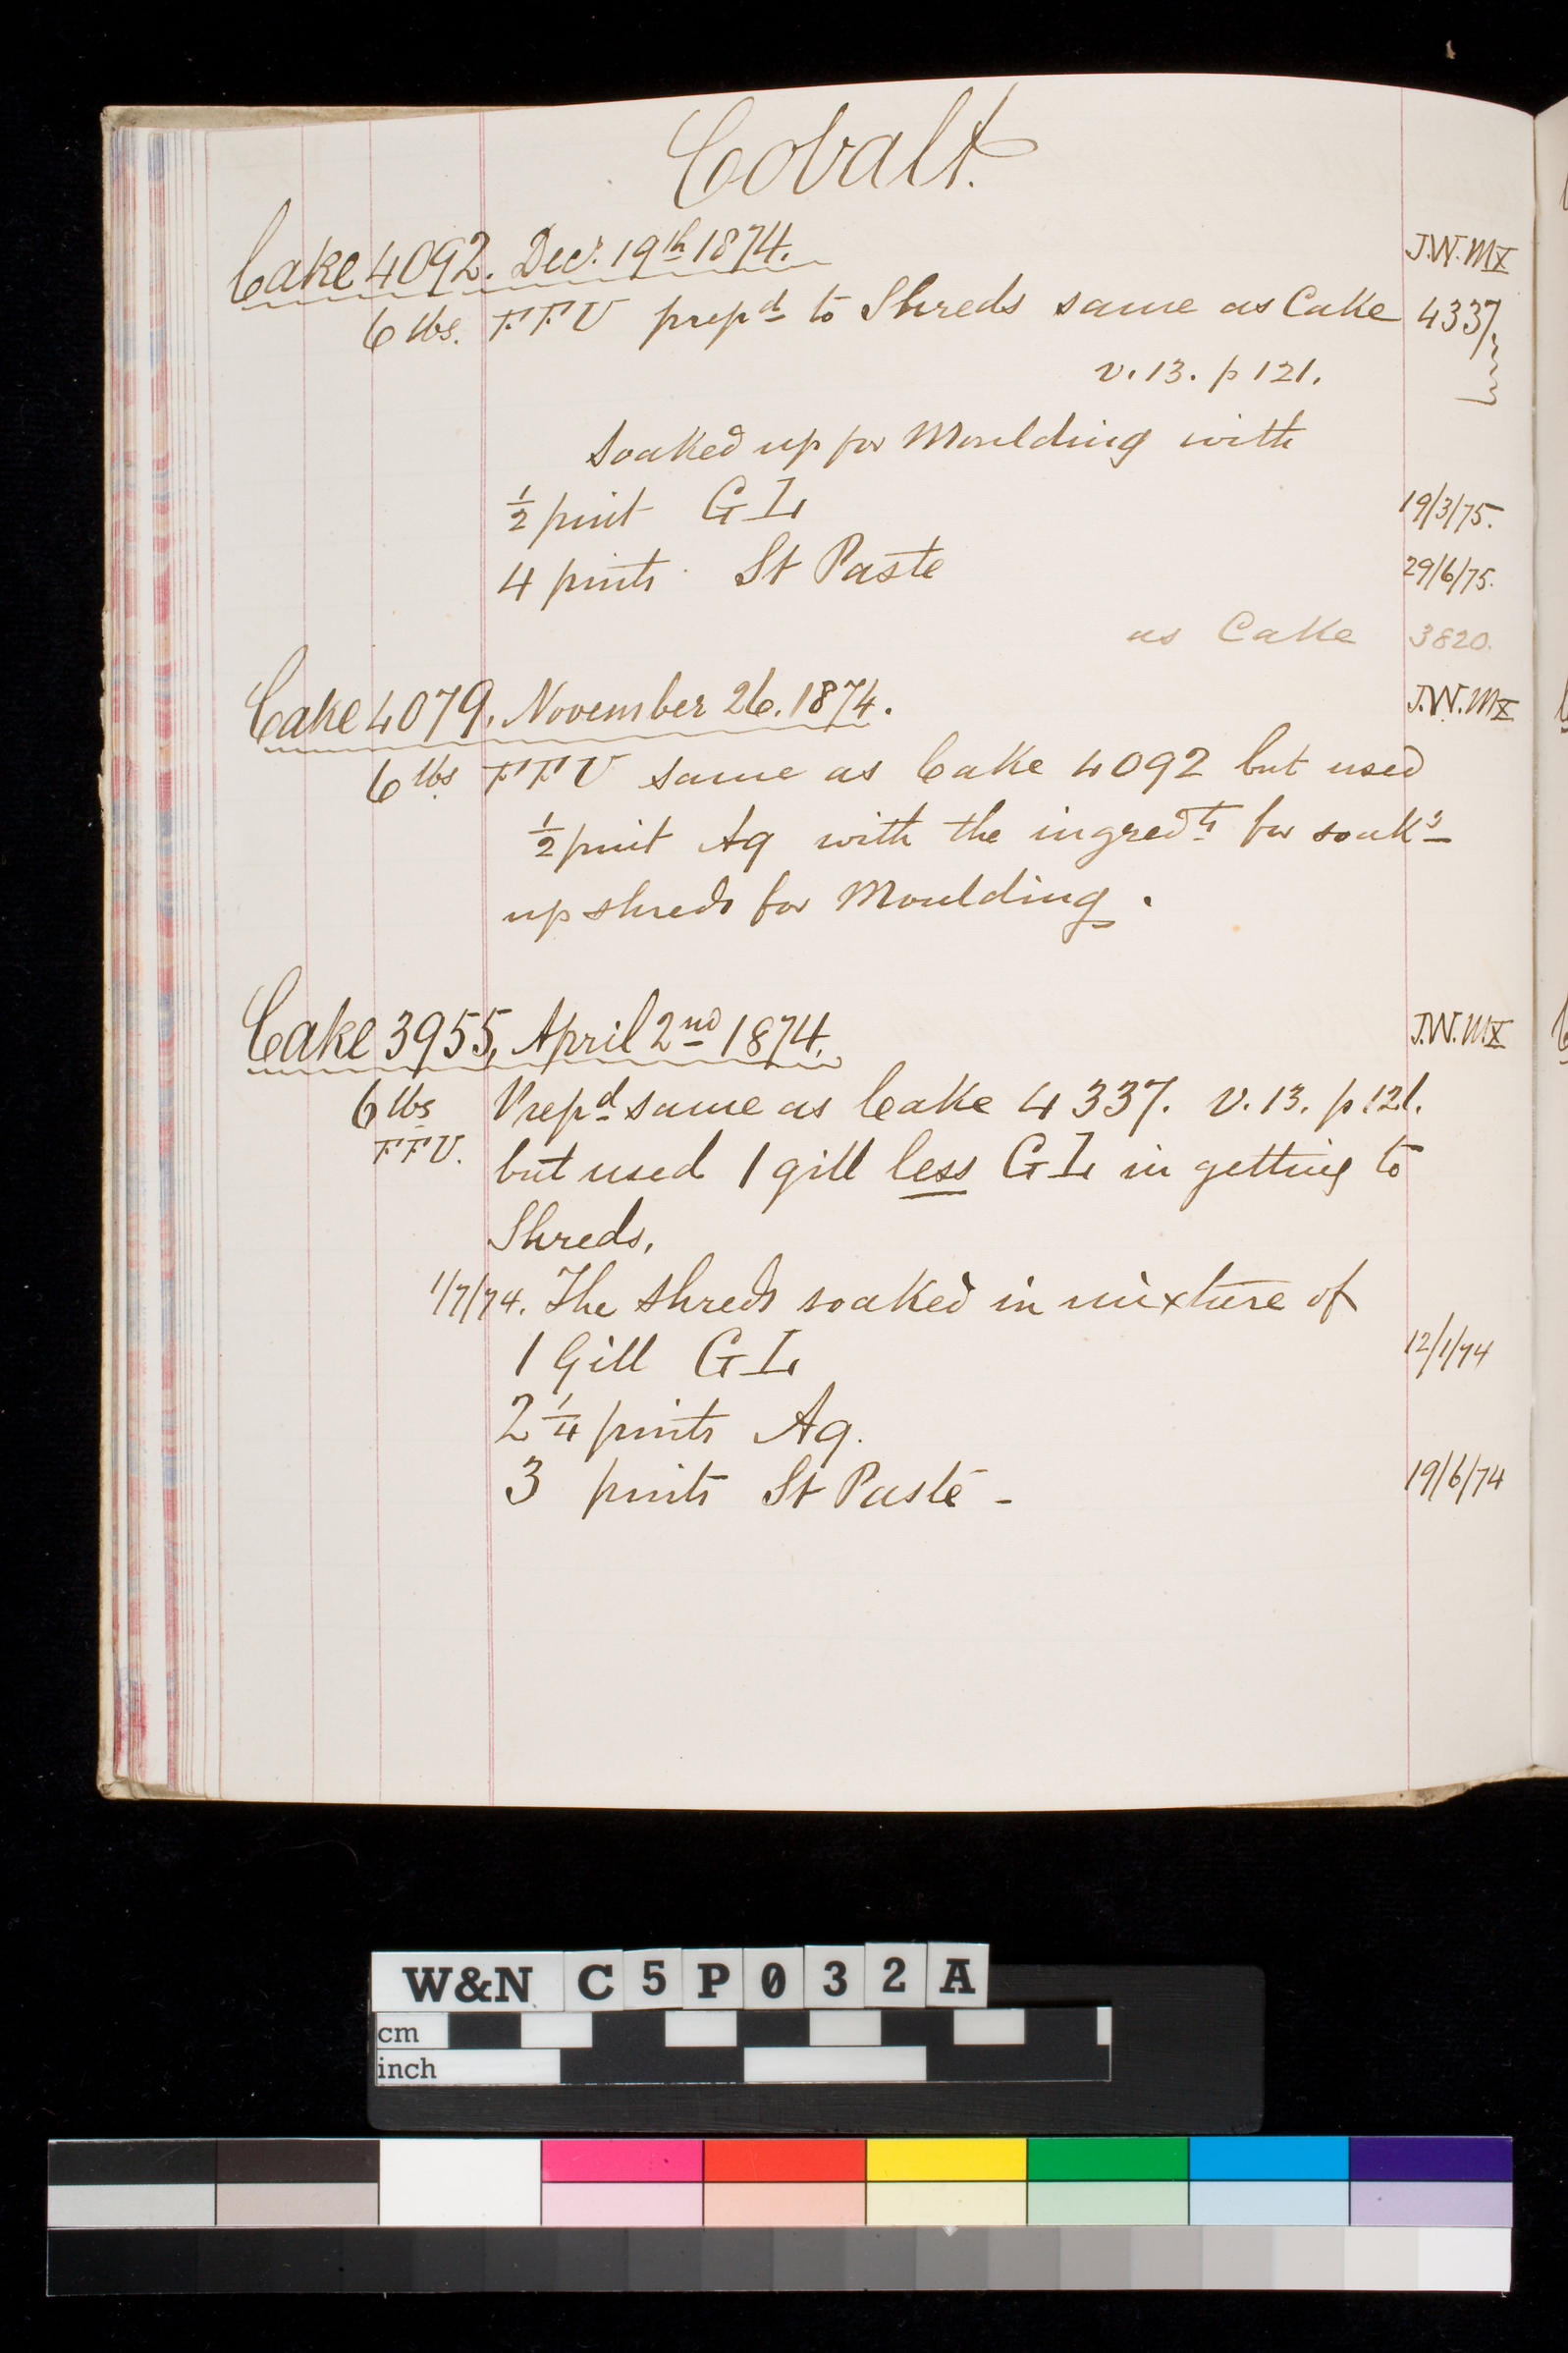 Cobalt.
Cake 4092. Decr. 19th 1874. J.W.MX
6 lbs. FFV prepd to Shreds same as Cake 4337.
v. 13. p 121.
soaked up for Moulding with
½ pint GL 19/3/75.
4 pints St Paste 29/6/75.
as Cake 3820.
Cake 4079. November 26. 1874. J.W.MX
6 lbs FFV same as Cake 4092 but used
½ pint Aq with the ingredts for soakg
up shreds for Moulding.
Cake 3955, April 2nd 1874. J.W.MX
6 lbs Prepd same as Cake 4337. v. 13. p 121.
FFV. but used 1 gill less GL in getting to
Shreds.
1/7/74. The shreds soaked in mixture of
1 Gill GL 12/1/74
2¼ pints Aq.
3 pints St Paste - 19/6/74
W&N C5P032A
cm
inch